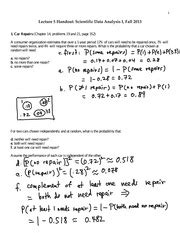 1
Lecture 5 Handout: Scientific Data Analysis I, Fall 2013
1. Car Repairs (Chapter 14, problems 19 and 21, page 352)
A consumer organization estimates that over a 1-year period 17% of cars will need to be repaired once, 7% will
need repairs twice, and 4% will require three or more repairs. What is the probability that a car chosen at
random will need
a. no repairs?
b. no more than one repair?
c. some repairs?
c. first: P(some repairs) = P(1) + P(2) + P(3+)
= 0.17 + 0.07 + 0.04 = 0.28
a. P(no repairs) = 1 - P(some repairs)
= 1 - 0.28 = 0.72
b. P(≠ repairs) = P(no repairs)
= 0.72 + 0.17 = 0.89
For two cars chosen independently and at random, what is the probability that
d. neither will need repair?
e. both will need repair?
f. at least one will need repair?
Assume the performance of each car is independent of the other.
d. P(no repairs)² = (.72)² ≈ 0.518
e. P(some repairs)² = (.28)² ≈ 0.078
f. complement of at least one needs repair
= both do not need repair
P(at least 1 needs repair) = 1 - P(both need no repair)
= 1 - 0.518 = 0.482